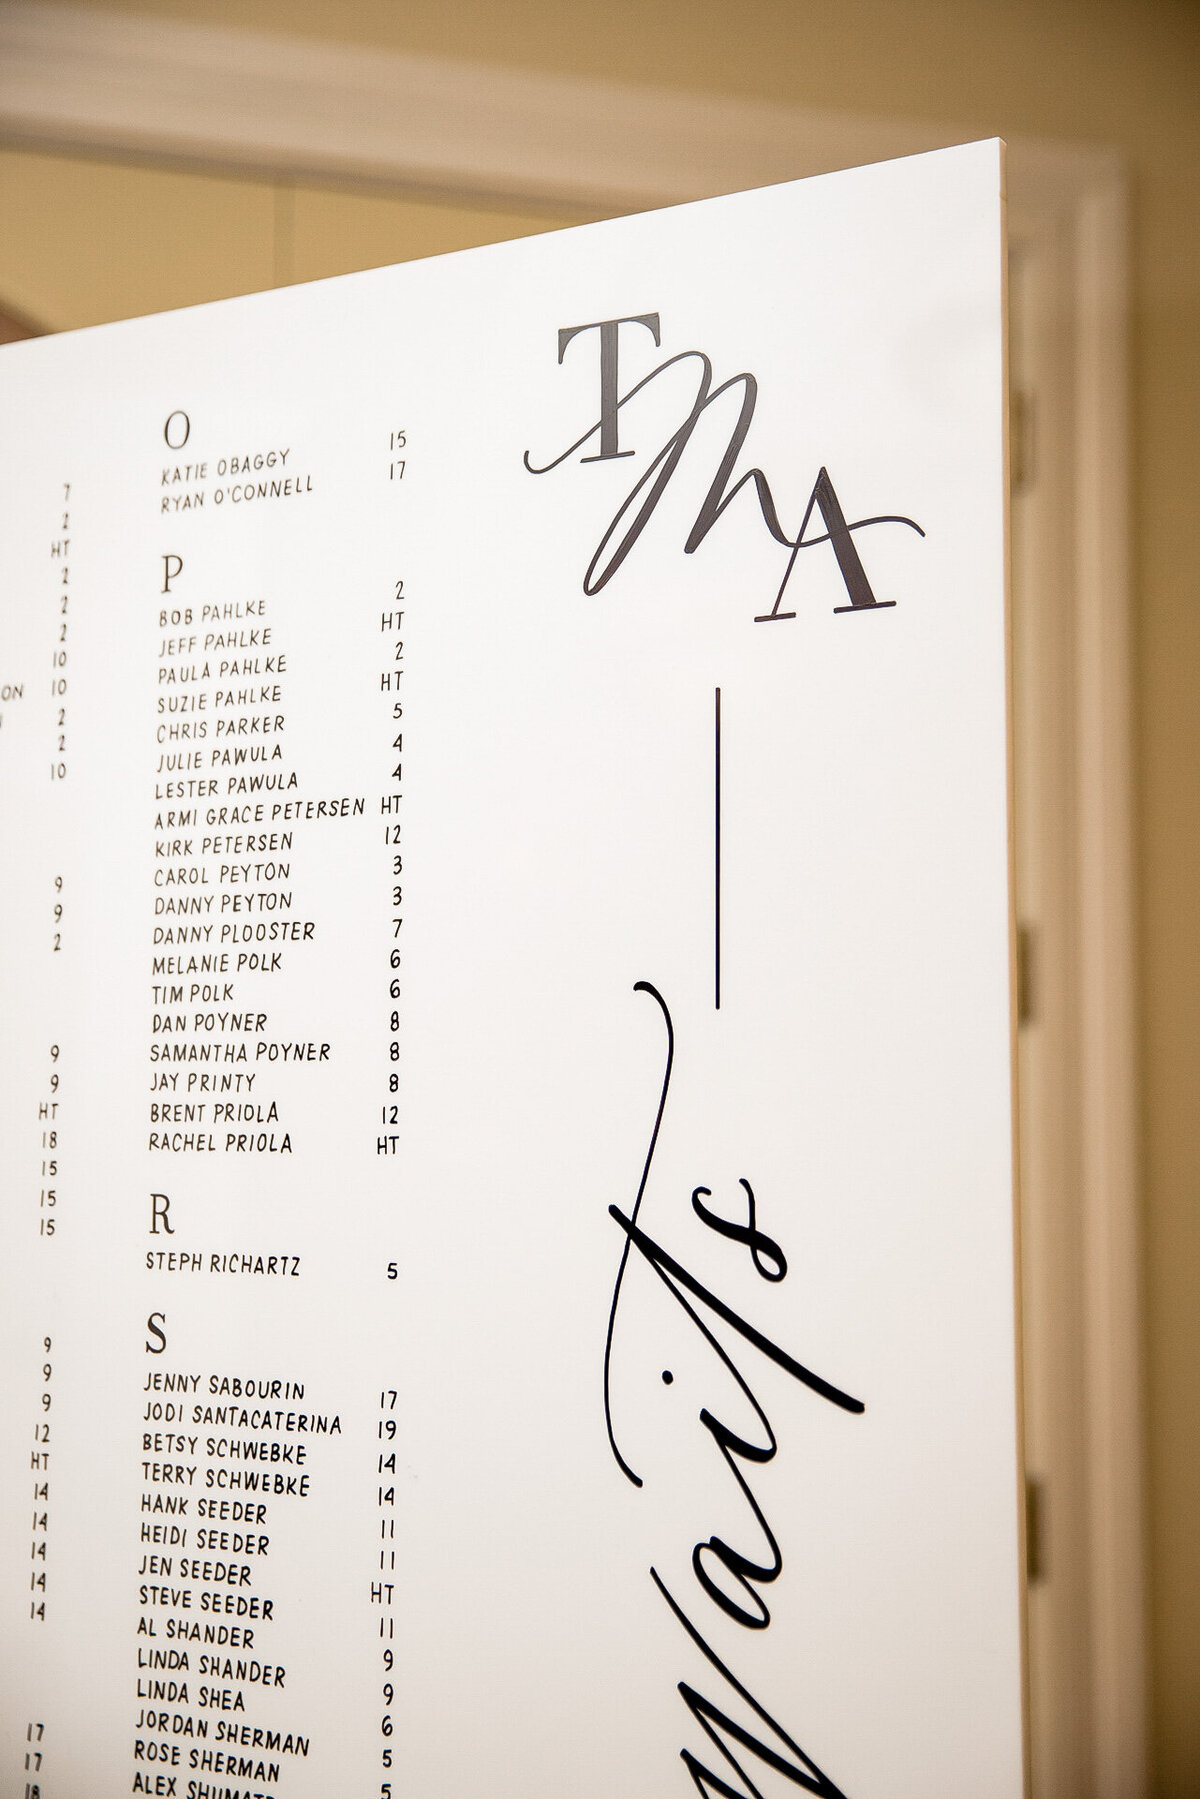 7
2
HT
2
2
2
10
ON 10
2
2
10
9
9
2
9
9
HT
18
15
15
15
9
9
9
12
HT
14
14
14
14
14
17
17
18
O
KATIE OBAGGY 15
RYAN O'CONNELL 17
P
BOB PAHLKE 2
JEFF PAHLKE HT
PAULA PAHLKE 2
SUZIE PAHLKE HT
CHRIS PARKER 5
JULIE PAWULA 4
LESTER PAWULA 4
ARMI GRACE PETERSEN HT
KIRK PETERSEN 12
CAROL PEYTON 3
DANNY PEYTON 3
DANNY PLOOSTER 7
MELANIE POLK 6
TIM POLK 6
DAN POYNER 8
SAMANTHA POYNER 8
JAY PRINTY 8
BRENT PRIOLA 12
RACHEL PRIOLA HT
R
STEPH RICHARTZ 5
S
JENNY SABOURIN 17
JODI SANTACATERINA 19
BETSY SCHWEBKE 14
TERRY SCHWEBKE 14
HANK SEEDER 11
HEIDI SEEDER 11
JEN SEEDER HT
STEVE SEEDER 11
AL SHANDER 9
LINDA SHANDER 9
LINDA SHEA 6
JORDAN SHERMAN 5
ROSE SHERMAN 5
ALEX
TMA
Waits